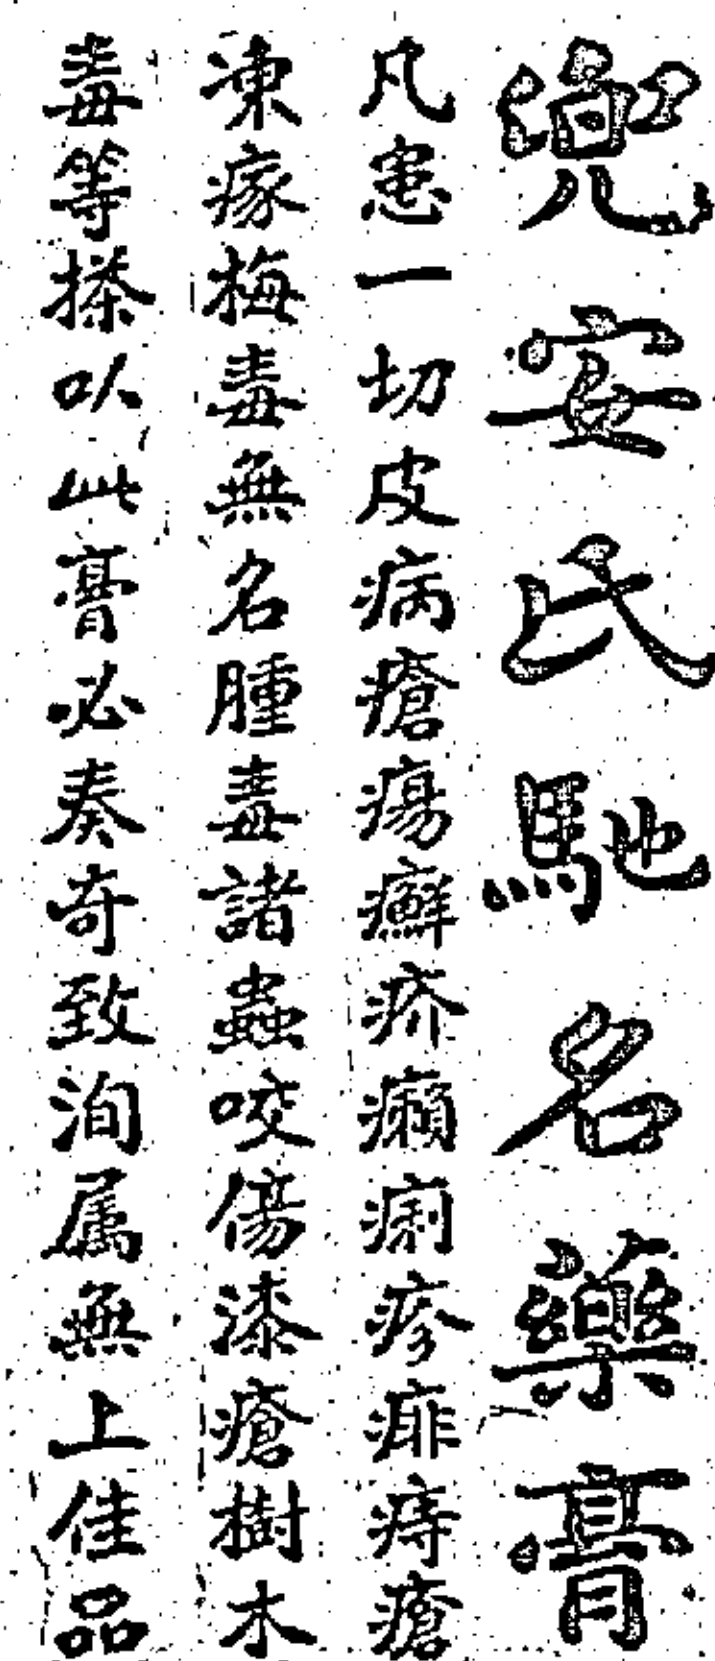 兜安氏馳名藥膏
凡患一切皮病瘡瘍癬疥癩痢疹痱痔瘡
凍瘃梅毒無名腫毒諸蟲咬傷漆瘡樹木
毒等搽以此膏必奏奇致洵属無上佳品